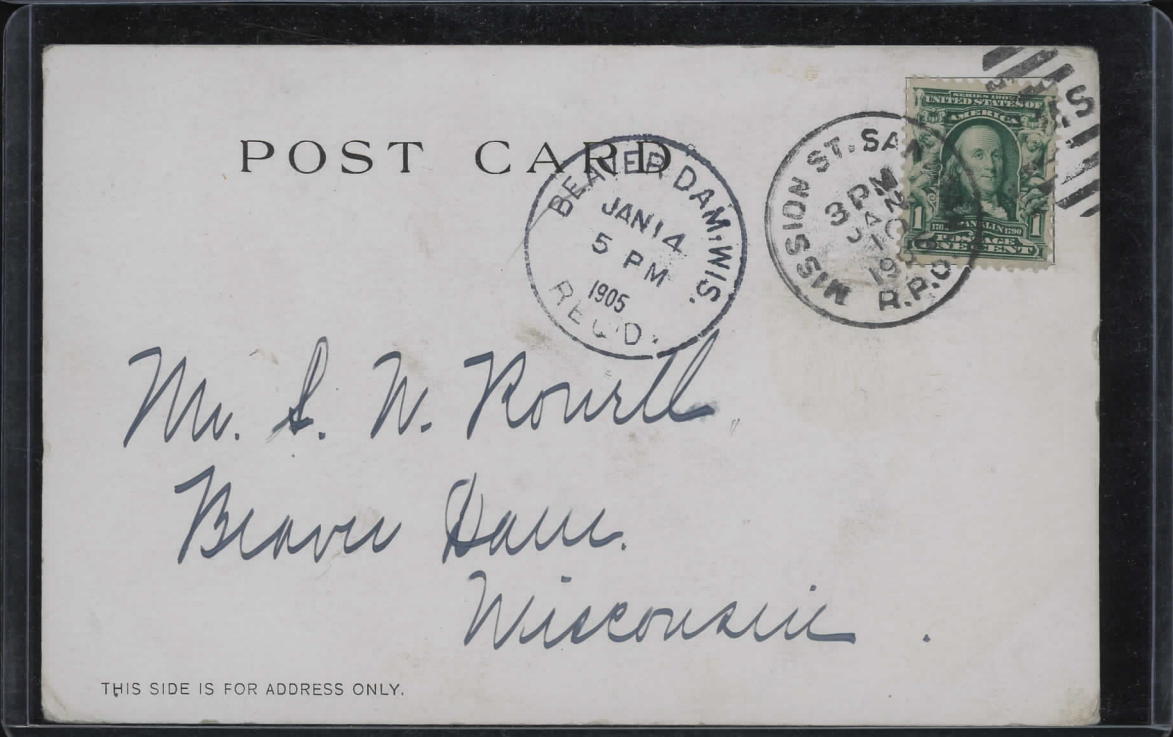 POST CARD
BEAVER DAM, WIS.
JAN 14
5 PM
1905
REC'D.
MISSION ST. SAN
3 PM
JAN
10
R.P.O.
SERIES 1902
UNITED STATES OF
AMERICA
1 FRANKLIN 1790 1
POSTAGE
ONE CENT
Mr. S. W. Rowell
Beaver Dam.
Wisconsin.
THIS SIDE IS FOR ADDRESS ONLY.